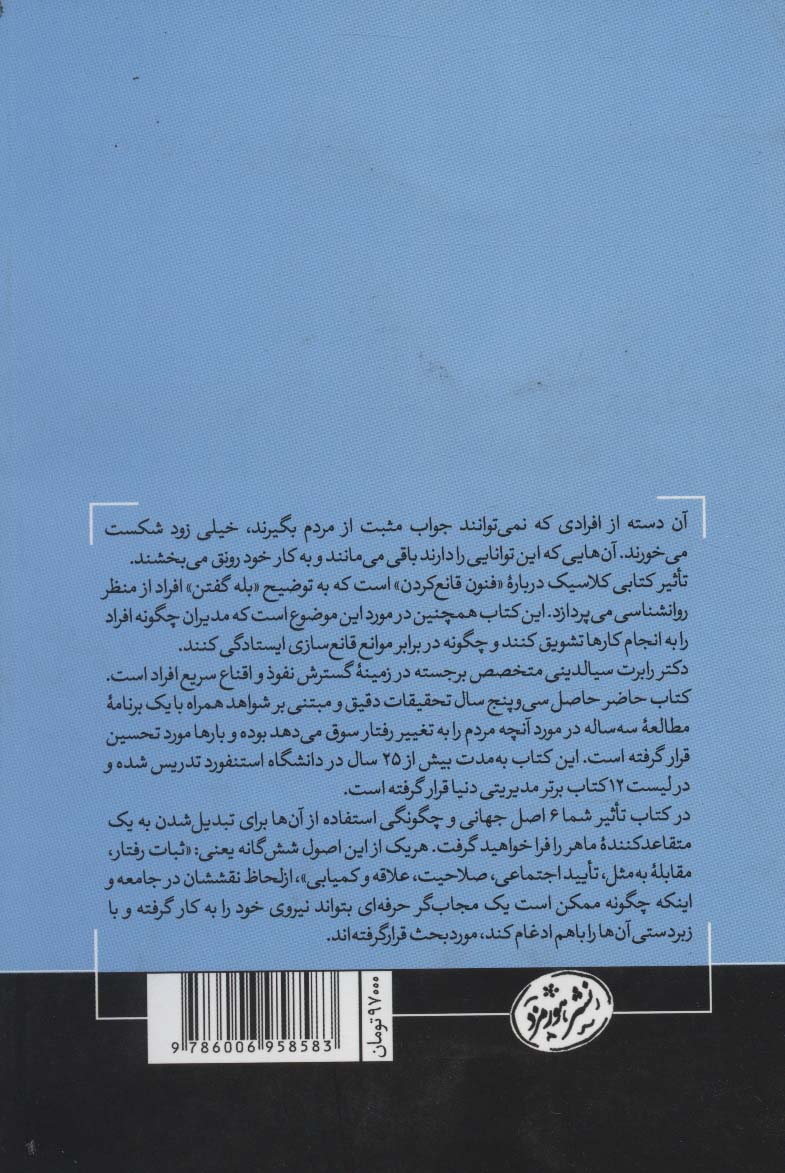 آن دسته از افرادی که نمی‌توانند جواب مثبت از مردم بگیرند، خیلی زود شکست
می‌خورند. آن‌هایی که این توانایی را دارند باقی می‌مانند و به کار خود رونق می‌بخشند.
تأثیر کتابی کلاسیک دربارهٔ «فنون قانع‌کردن» است که به توضیح «بله گفتن» افراد از منظر
روانشناسی می‌پردازد. این کتاب همچنین در مورد این موضوع است که مدیران چگونه افراد
را به انجام کارها تشویق کنند و چگونه در برابر موانع قانع‌سازی ایستادگی کنند.
دکتر رابرت سیالدینی متخصص برجسته در زمینهٔ گسترش نفوذ و اقناع سریع افراد است.
کتاب حاضر حاصل سی‌وپنج سال تحقیقات دقیق و مبتنی بر شواهد همراه با یک برنامهٔ
مطالعهٔ سه‌ساله در مورد آنچه مردم را به تغییر رفتار سوق می‌دهد بوده و بارها مورد تحسین
قرار گرفته است. این کتاب به‌مدت بیش از ۲۵ سال در دانشگاه استنفورد تدریس شده و
در لیست ۱۲ کتاب برتر مدیریتی دنیا قرار گرفته است.
در کتاب تأثیر شما ۶ اصل جهانی و چگونگی استفاده از آن‌ها برای تبدیل‌شدن به یک
متقاعدکنندهٔ ماهر را فرا خواهید گرفت. هریک از این اصول شش‌گانه یعنی: «ثبات رفتار،
مقابلهٔ به‌مثل، تأیید اجتماعی، صلاحیت، علاقه و کمیابی»، ازلحاظ نقششان در جامعه و
اینکه چگونه ممکن است یک مجاب‌گر حرفه‌ای بتواند نیروی خود را به کار گرفته و با
زبردستی آن‌ها را باهم ادغام کند، مورد بحث قرار گرفته‌اند.
نشر هورمزد
۹۷۰۰۰ تومان
9 786006 958583